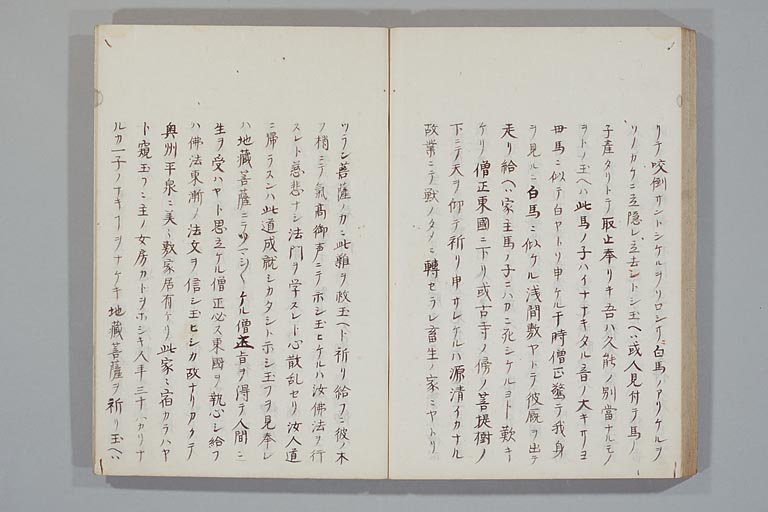 リテ咬倒サントシケルヲソロシケニ白馬ノアリケルヲ
ソノカケニ立隠レ立去ントシ玉ヘハ或人見付テ馬ノ
子産タリトテ取止奉リキ吾ハ久能ノ別當ナルモノ
ヲトノ玉ヘハ此馬ノ子ハイナナキタル音ノ大キサヨ
母馬ニ似テ白ヤトリ申ケル于時僧正驚テ我身
ヲ見ルニ白馬ニ似ケル浅間敷ヤトテ彼厩ヲ出テ
走リ給ヘハ家主馬ノ子ニハカニ死シケルヨト歎キ
ケリ僧正東國ニ下リ或古寺ノ傍ノ菩提樹ノ
下ニテ天ヲ仰テ祈リ申サレケルハ源清イカナル
故業ニテ獣ノタメニ轉セラレ畜生ノ家ニヤトリ
ツラン菩薩ノカニ此難ヲ救玉ヘト祈リ給フニ彼ノ木
ノ梢ニテ氣高御声ニテ示シ玉ヒケルハ汝佛法ヲ行
スレト慈悲ナシ法門ヲ学スレト心散乱セリ汝人道
ニ帰ラスンハ此道成就シカタシト示シ玉フヲ見奉レ
ハ地蔵菩薩ニテ ケル僧正旨ヲ得テ人間ニ
生ヲ受ハヤト思立ケル僧正必ス東國ヲ執心シ給フ
ハ佛法東漸ノ法文ヲ信シ玉ヒシカ故ナリカクテ
奥州平泉ニ美々敷家居有ケリ此家ニ宿カラハヤ
ト窺玉フニ主ノ女房カトヲホシキ人年三十ハカリナ
ルカ一子ノナキヿヲナケキ地蔵菩薩ヲ祈リ玉ヘハ